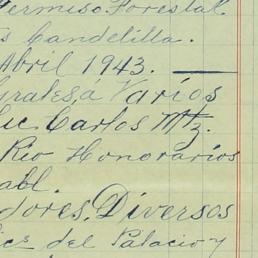 Permiso Forestal
s Candelilla.
Abril 1943.
Grales, a Varios
Luc. Carlos Mtz.
Rio Honorarios
abl.
dores, Diversos
ices del Palacio y